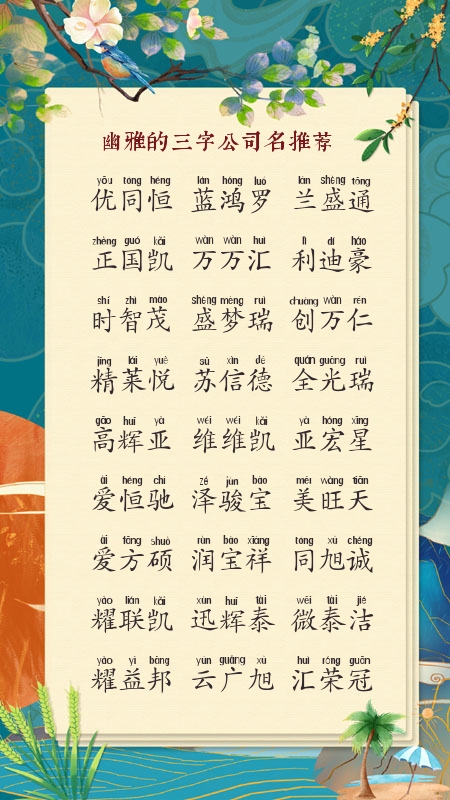 幽雅的三字公司名推荐
yōu tóng héng lán hóng luó lán shèng tōng
优同恒 蓝鸿罗 兰盛通
zhèng guó kǎi wàn wàn huì lì dí háo
正国凯 万万汇 利迪豪
shí zhì mào shèng mèng ruì chuàng wàn rén
时智茂 盛梦瑞 创万仁
jīng lái yuè sū xìn dé quán guāng ruì
精莱悦 苏信德 全光瑞
gāo huī yà wéi wéi kǎi yà hóng xīng
高辉亚 维维凯 亚宏星
ài héng chí zé jùn bǎo měi wàng tiān
爱恒驰 泽骏宝 美旺天
ài fāng shuò rùn bǎo xiáng tóng xù chéng
爱方硕 润宝祥 同旭诚
yào lián kǎi xùn huī tài wēi tài jié
耀联凯 迅辉泰 微泰洁
yào yì bāng yún guǎng xù huì róng guān
耀益邦 云广旭 汇荣冠